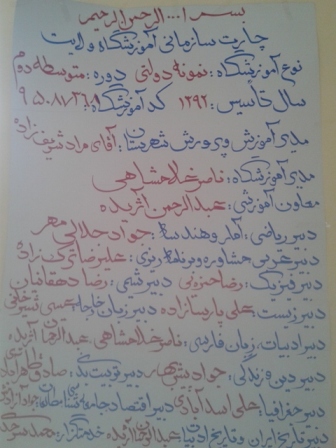 بسم ا... الرحمن الرحیم
چارت سازمانی آموزشگاه ولایت
نوع آموزشگاه: نمونه دولتی دوره: متوسطه دوم
سال تأسیس: ۱۳۹۲ کد آموزشگاه:
مدیر آموزش و پرورش شهرستان: آقای مراد شریف زاده
مدیر آموزشگاه: ناصر خلامشاهی
معاون آموزشی: عبدالرحمن آئریده
دبیر ریاضی: آمار و هندسه: جواد جلالی مهر
دبیر عربی مشاوره و برنامه ریزی: علیرضا ترک زاده
دبیر فیزیک: رضا حمزه یی دبیر شیمی: رضا دهقانیان
دبیر زیست: علی پارسازاده دبیر زبان خارجه: عیسی
دبیر ادبیات: زبان فارسی: ناصر خلامشاهی عبدالرحمان آئریده
دبیر دین و زندگی: جواد دبیر تربیت بدنی: صادق
دبیر جغرافیا: علی اسدآبادی دبیر اقتصاد جامعه شناسی
دبیر تاریخ ایران و تاریخ ادبیات عبدالرحمن آئریده خدمتگزار: حمد